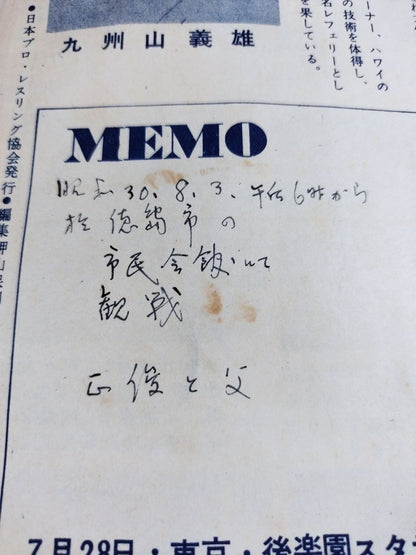 ーナー、ハワイの
の技術を体得し、
名レフェリーとし
を果している。
九州山義雄
●日本プロ・レスリング協会発行●編集
MEMO
昭和30.8.3.午后6時から
於徳島市の
市民会館にて
観戦
正俊と父
7月28日・東京・後楽園スタ